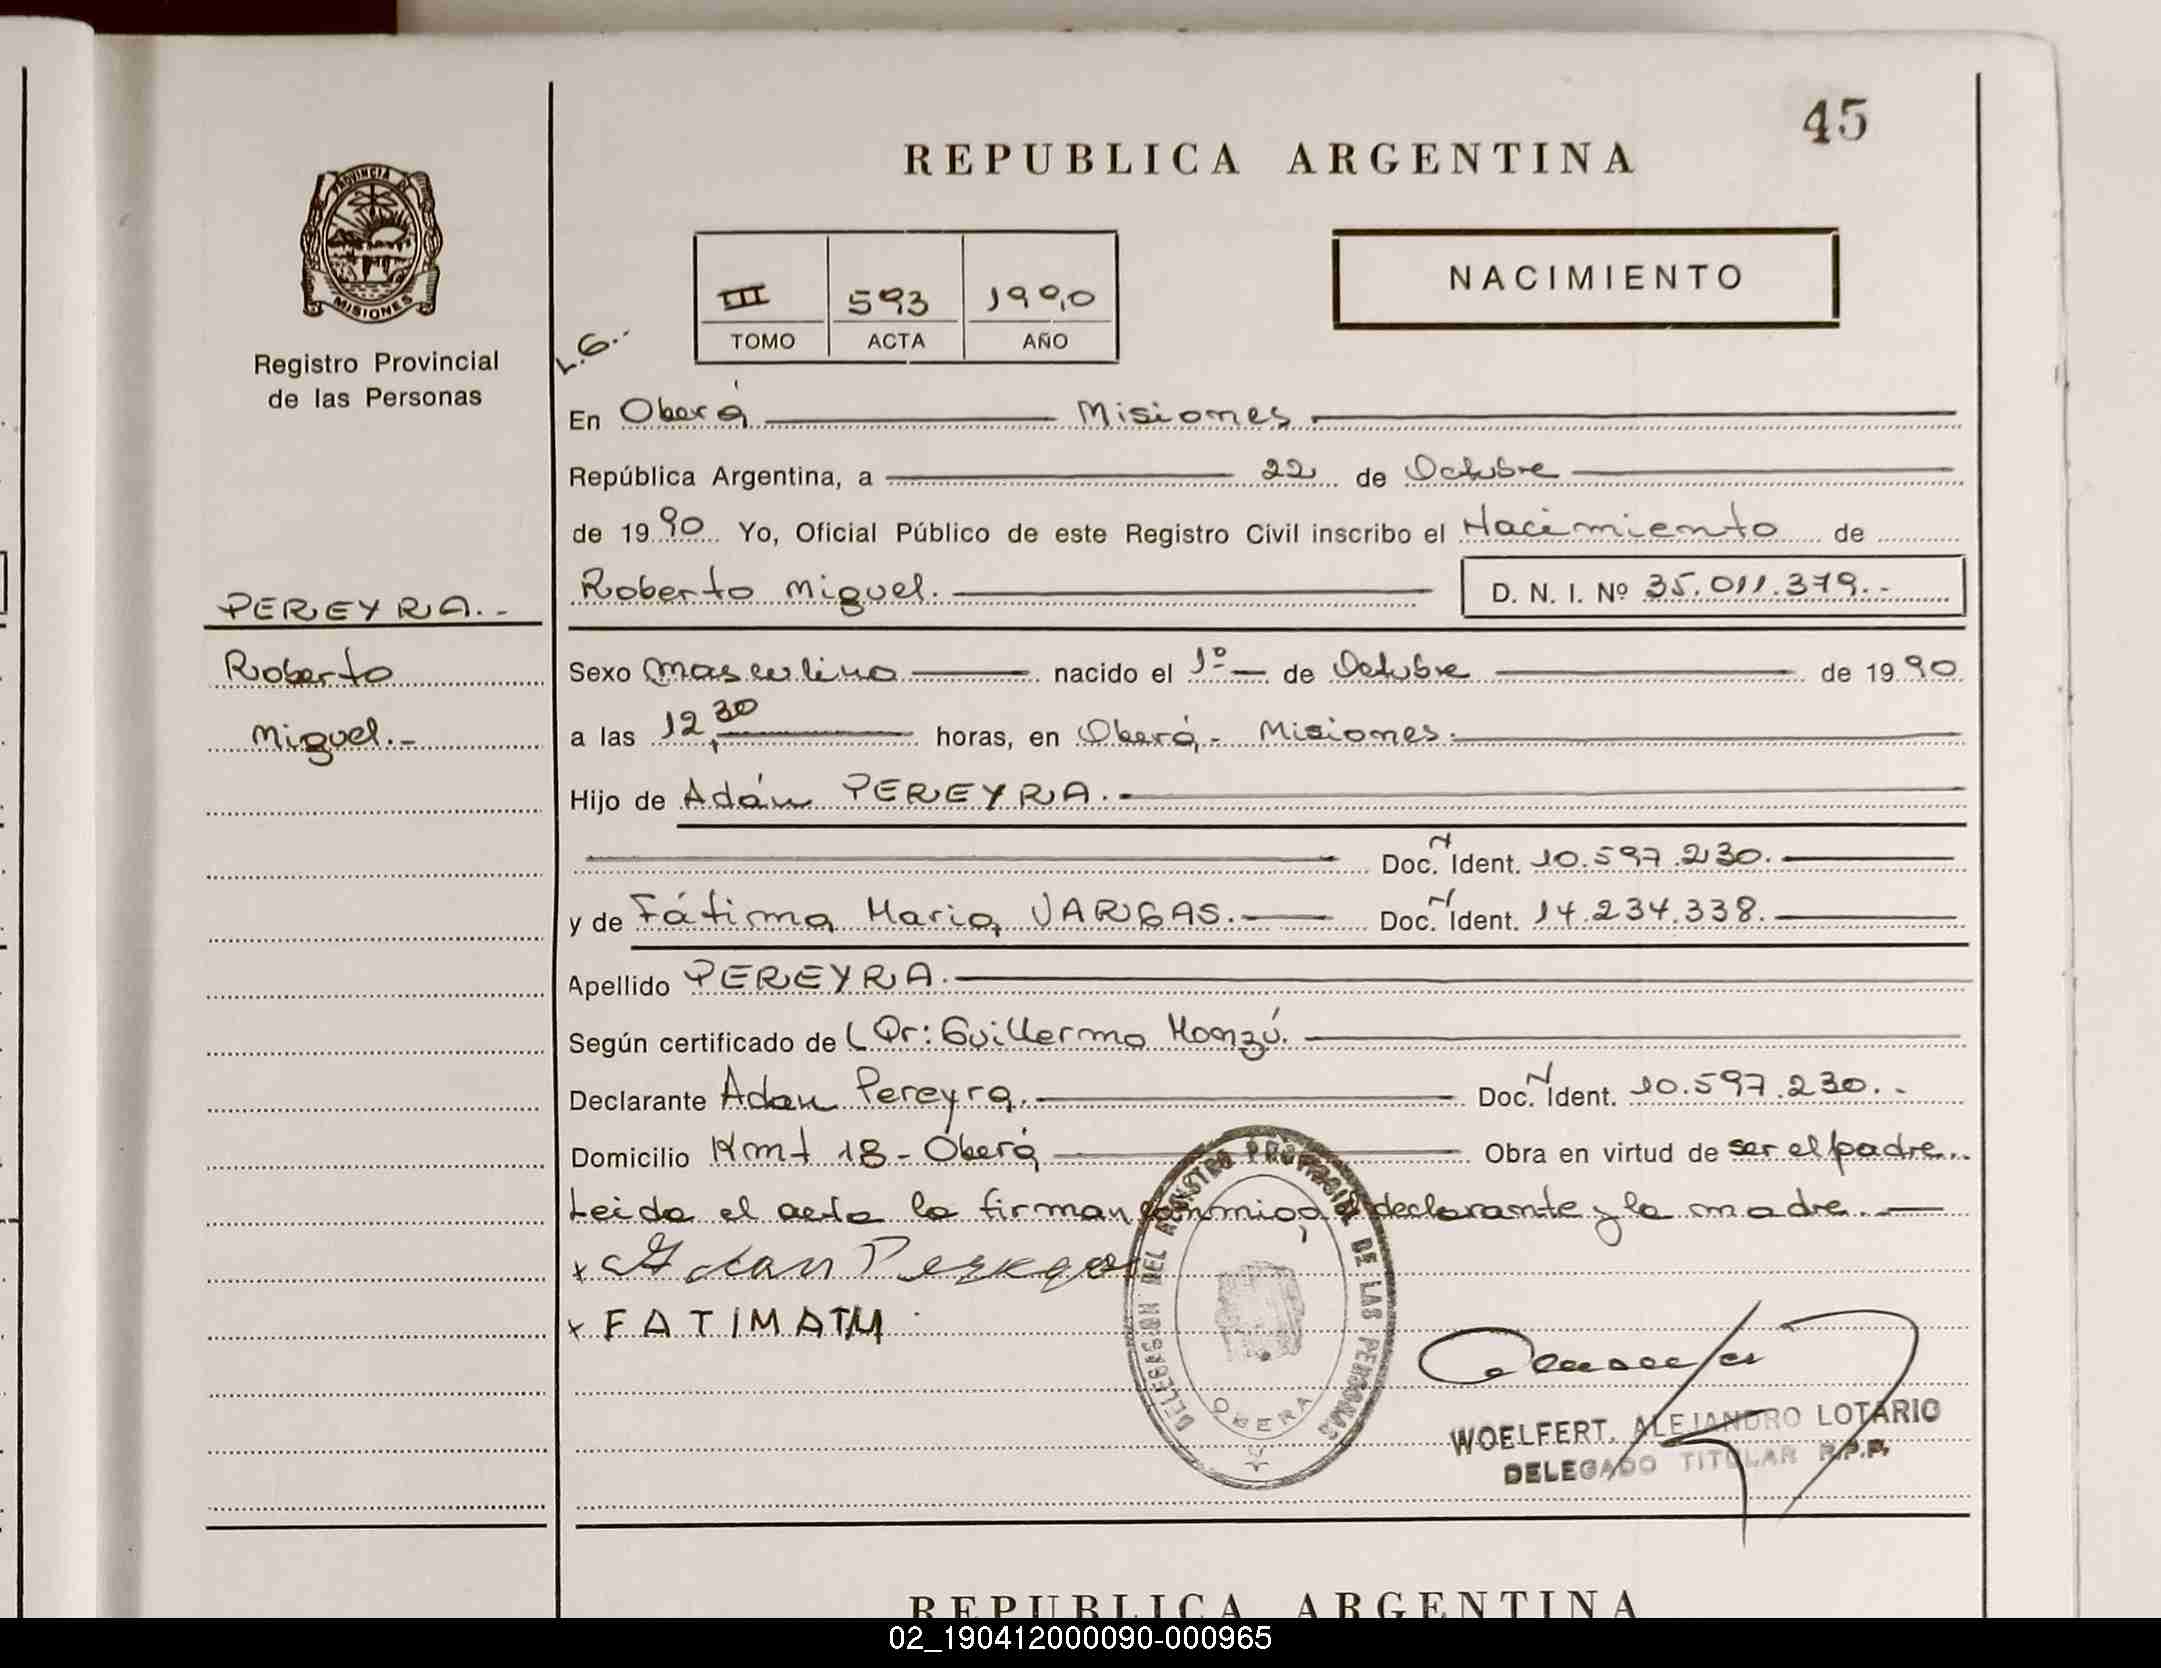 45
REPUBLICA ARGENTINA
PROVINCIA DE
MISIONES
Registro Provincial
de las Personas
NACIMIENTO
III 593 1990
TOMO ACTA AÑO
L.G..
En Oberá Misiones
República Argentina, a 22 de Octubre
de 1990 Yo, Oficial Público de este Registro Civil inscribo el Nacimiento de
Roberto Miguel. D. N. I. Nº 35.011.379.-
PEREYRA.-
Roberto
Miguel.-
Sexo masculino nacido el 1º de Octubre de 1990
a las 12,30 horas, en Oberá,- Misiones.
Hijo de Adán PEREYRA.
Doc. N Ident. 10.597.230.
y de Fátima Maria VARGAS. Doc. N Ident. 14.234.338.
Apellido PEREYRA.
Según certificado de Dr: Guillermo Monzú.
Declarante Adan Pereyra. Doc. N Ident. 10.597.230.-
Domicilio Kmt 18 - Oberá Obra en virtud de ser el padre..
Leida el acta la firman conmigo, el declarante y la madre.
x Adan Pereyra
x FATIMATM
DELEGACION DEL REGISTRO PROVINCIAL DE LAS PERSONAS
OBERA
WOELFERT, ALEJANDRO LOTARIO
DELEGADO TITULAR R.P.P.
REPUBLICA ARGENTINA
02_190412000090-000965